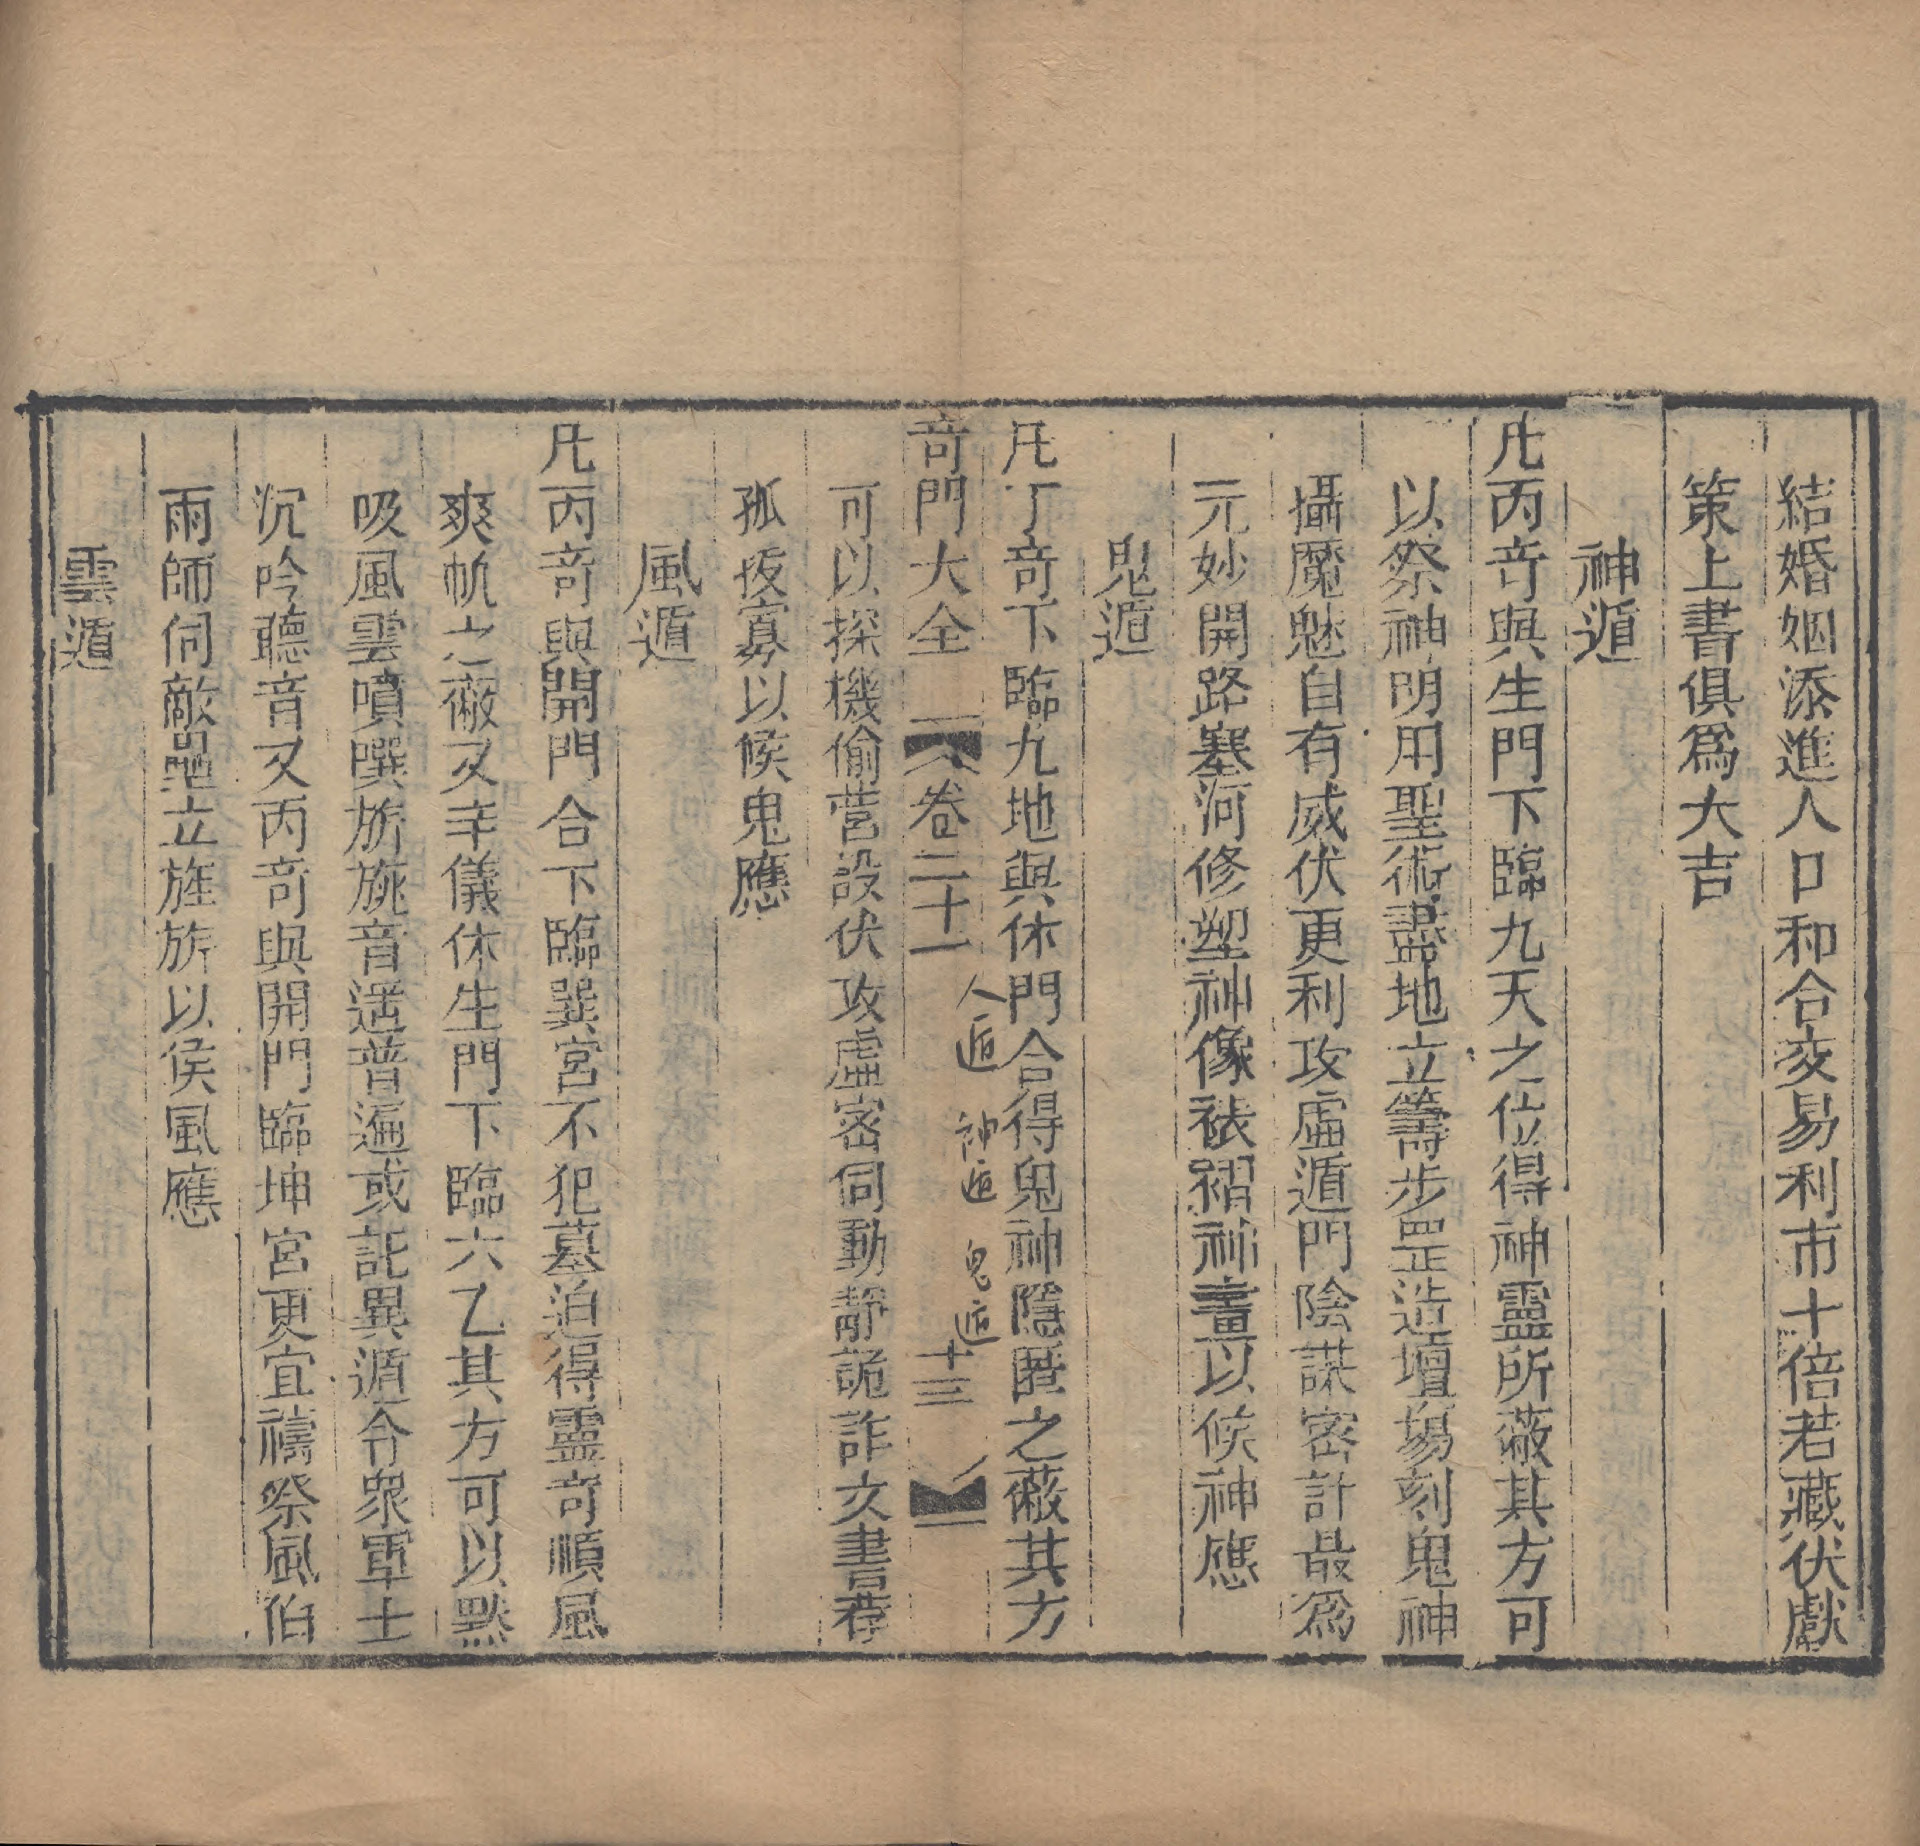 結婚姻添進人口和合交易利市十倍若藏伏獻
策上書俱爲大吉
神遁
凡丙竒與生門下臨九天之位得神靈所蔽其方可
以祭神明用聖術盡地立籌步罡造壇場刻鬼神
攝魔魅自有威伏更利攻虛遁門陰謀密計最爲
元妙開路塞河修塑神像裱褶神畫以候神應
鬼遁
凡丁竒下臨九地與休門合得鬼神隱匿之蔽其方
竒門大全 卷二十一 人遁 神遁 鬼遁 十三
可以探機偷營設伏攻虛密伺動靜詭詐文書荐
孤拔寡以候鬼應
風遁
凡丙竒與開門合下臨巽宮不犯墓迫得靈竒順風
爽帆之蔽又辛儀休生門下臨六乙其方可以黙
吸風雲噴噀旂旐音遥普遍或託異遁令衆軍士
沉吟聽音又丙竒與開門臨坤宮更宜禱祭風伯
雨師伺敵壘立旌旂以侯風應
雲遁